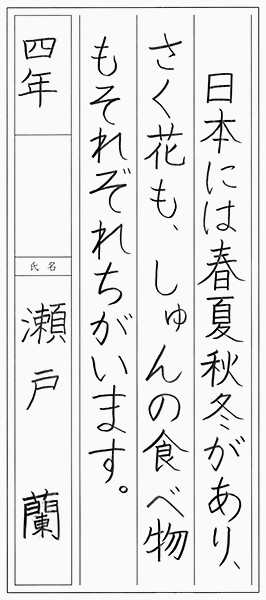 日本には春夏秋冬があり、
さく花も、しゅんの食べ物
もそれぞれちがいます。
四年
氏名
瀬戸蘭